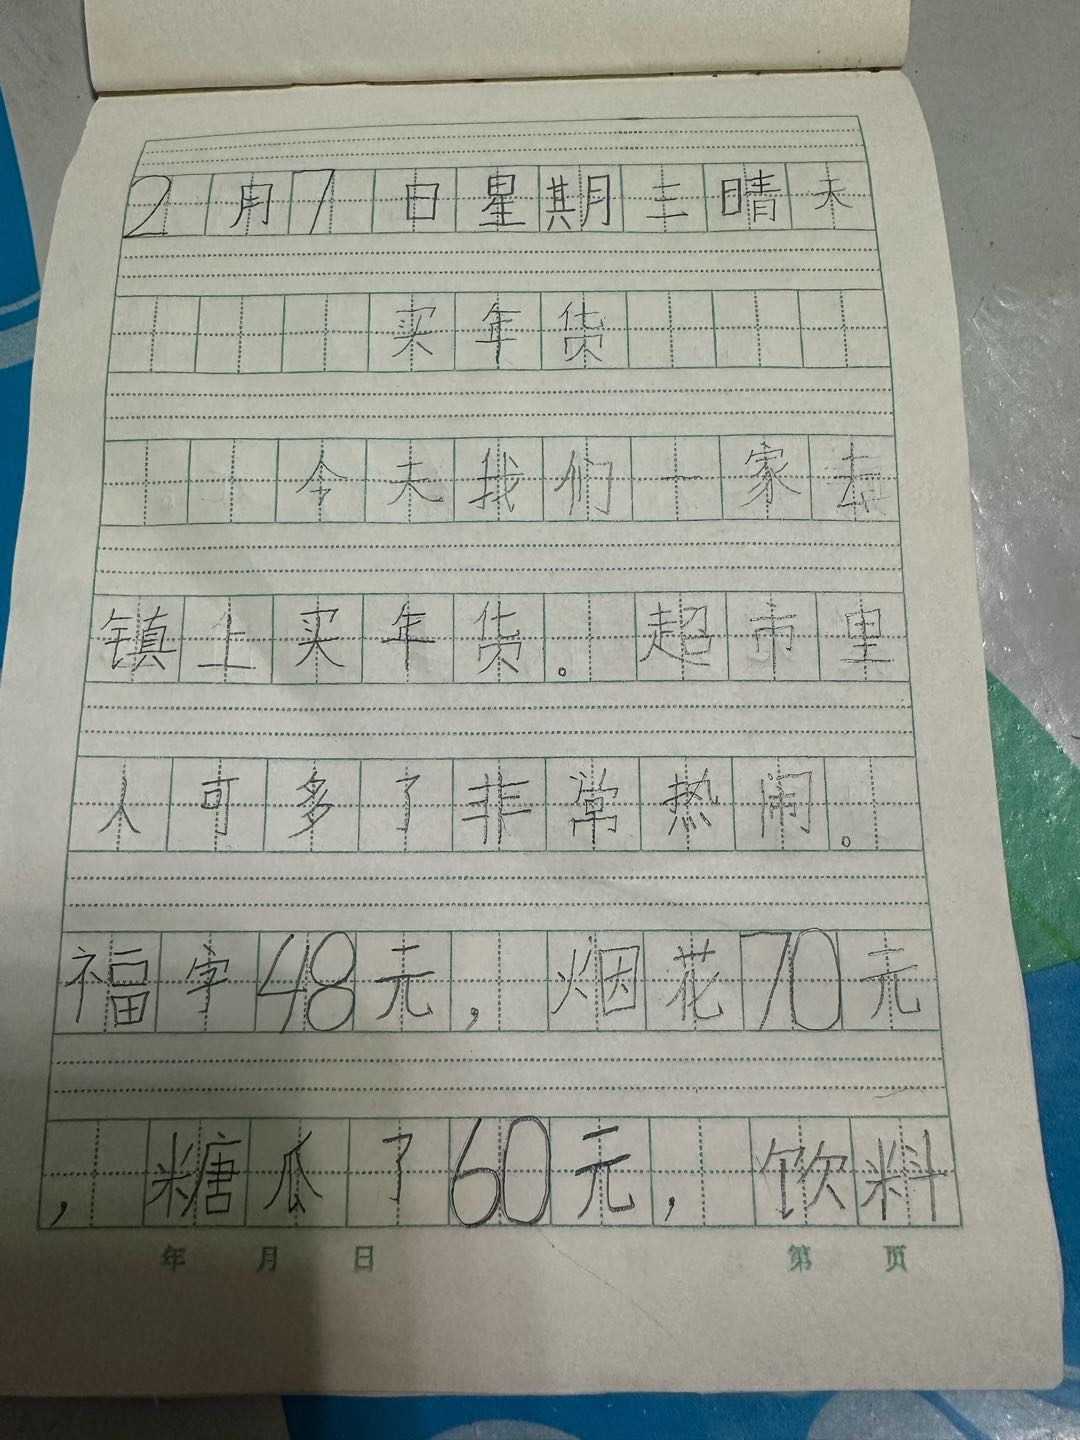 2月7日星期三晴天
买年货
今天我们一家去
镇上买年货。超市里
人可多了非常热闹。
福字48元，烟花70元
，糖瓜了60元，饮料
年 月 日 第 页